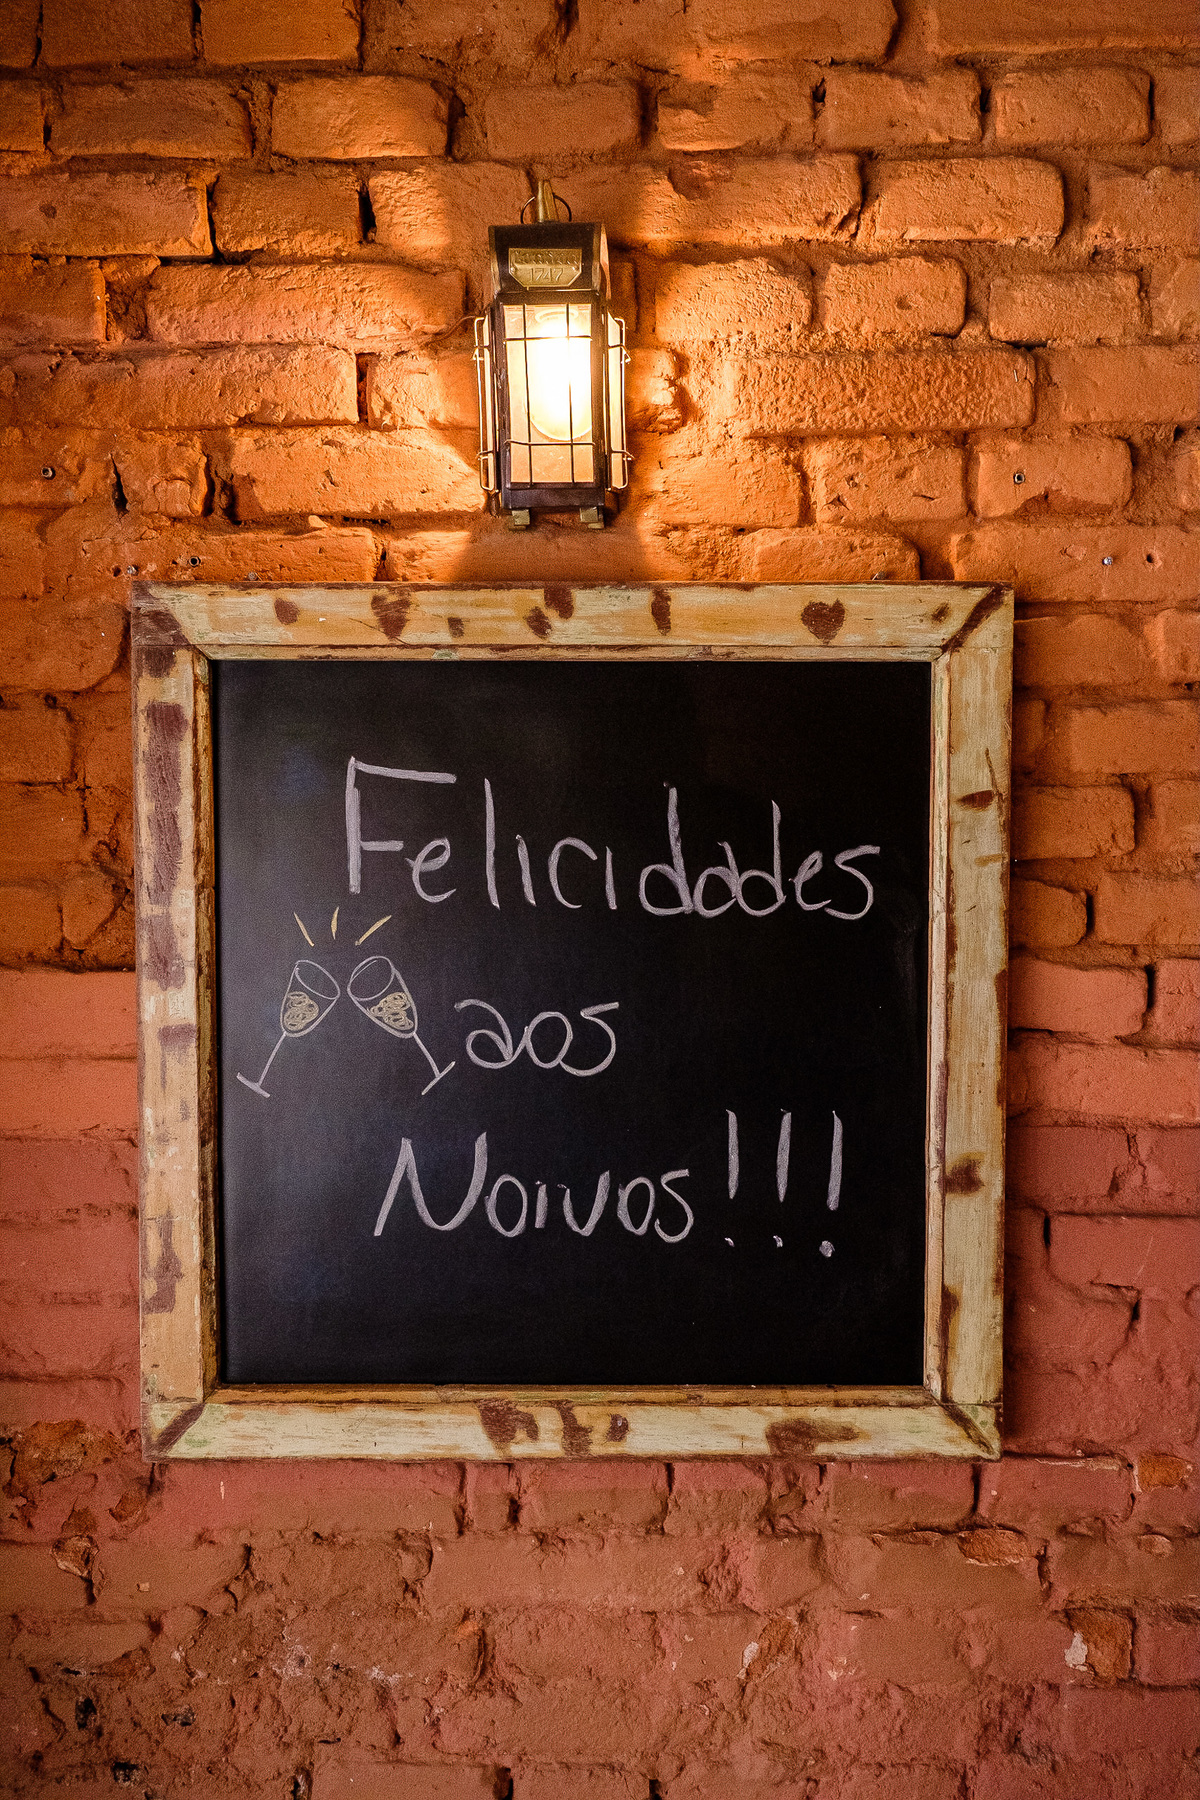 1747
Felicidades
aos
Noivos!!!